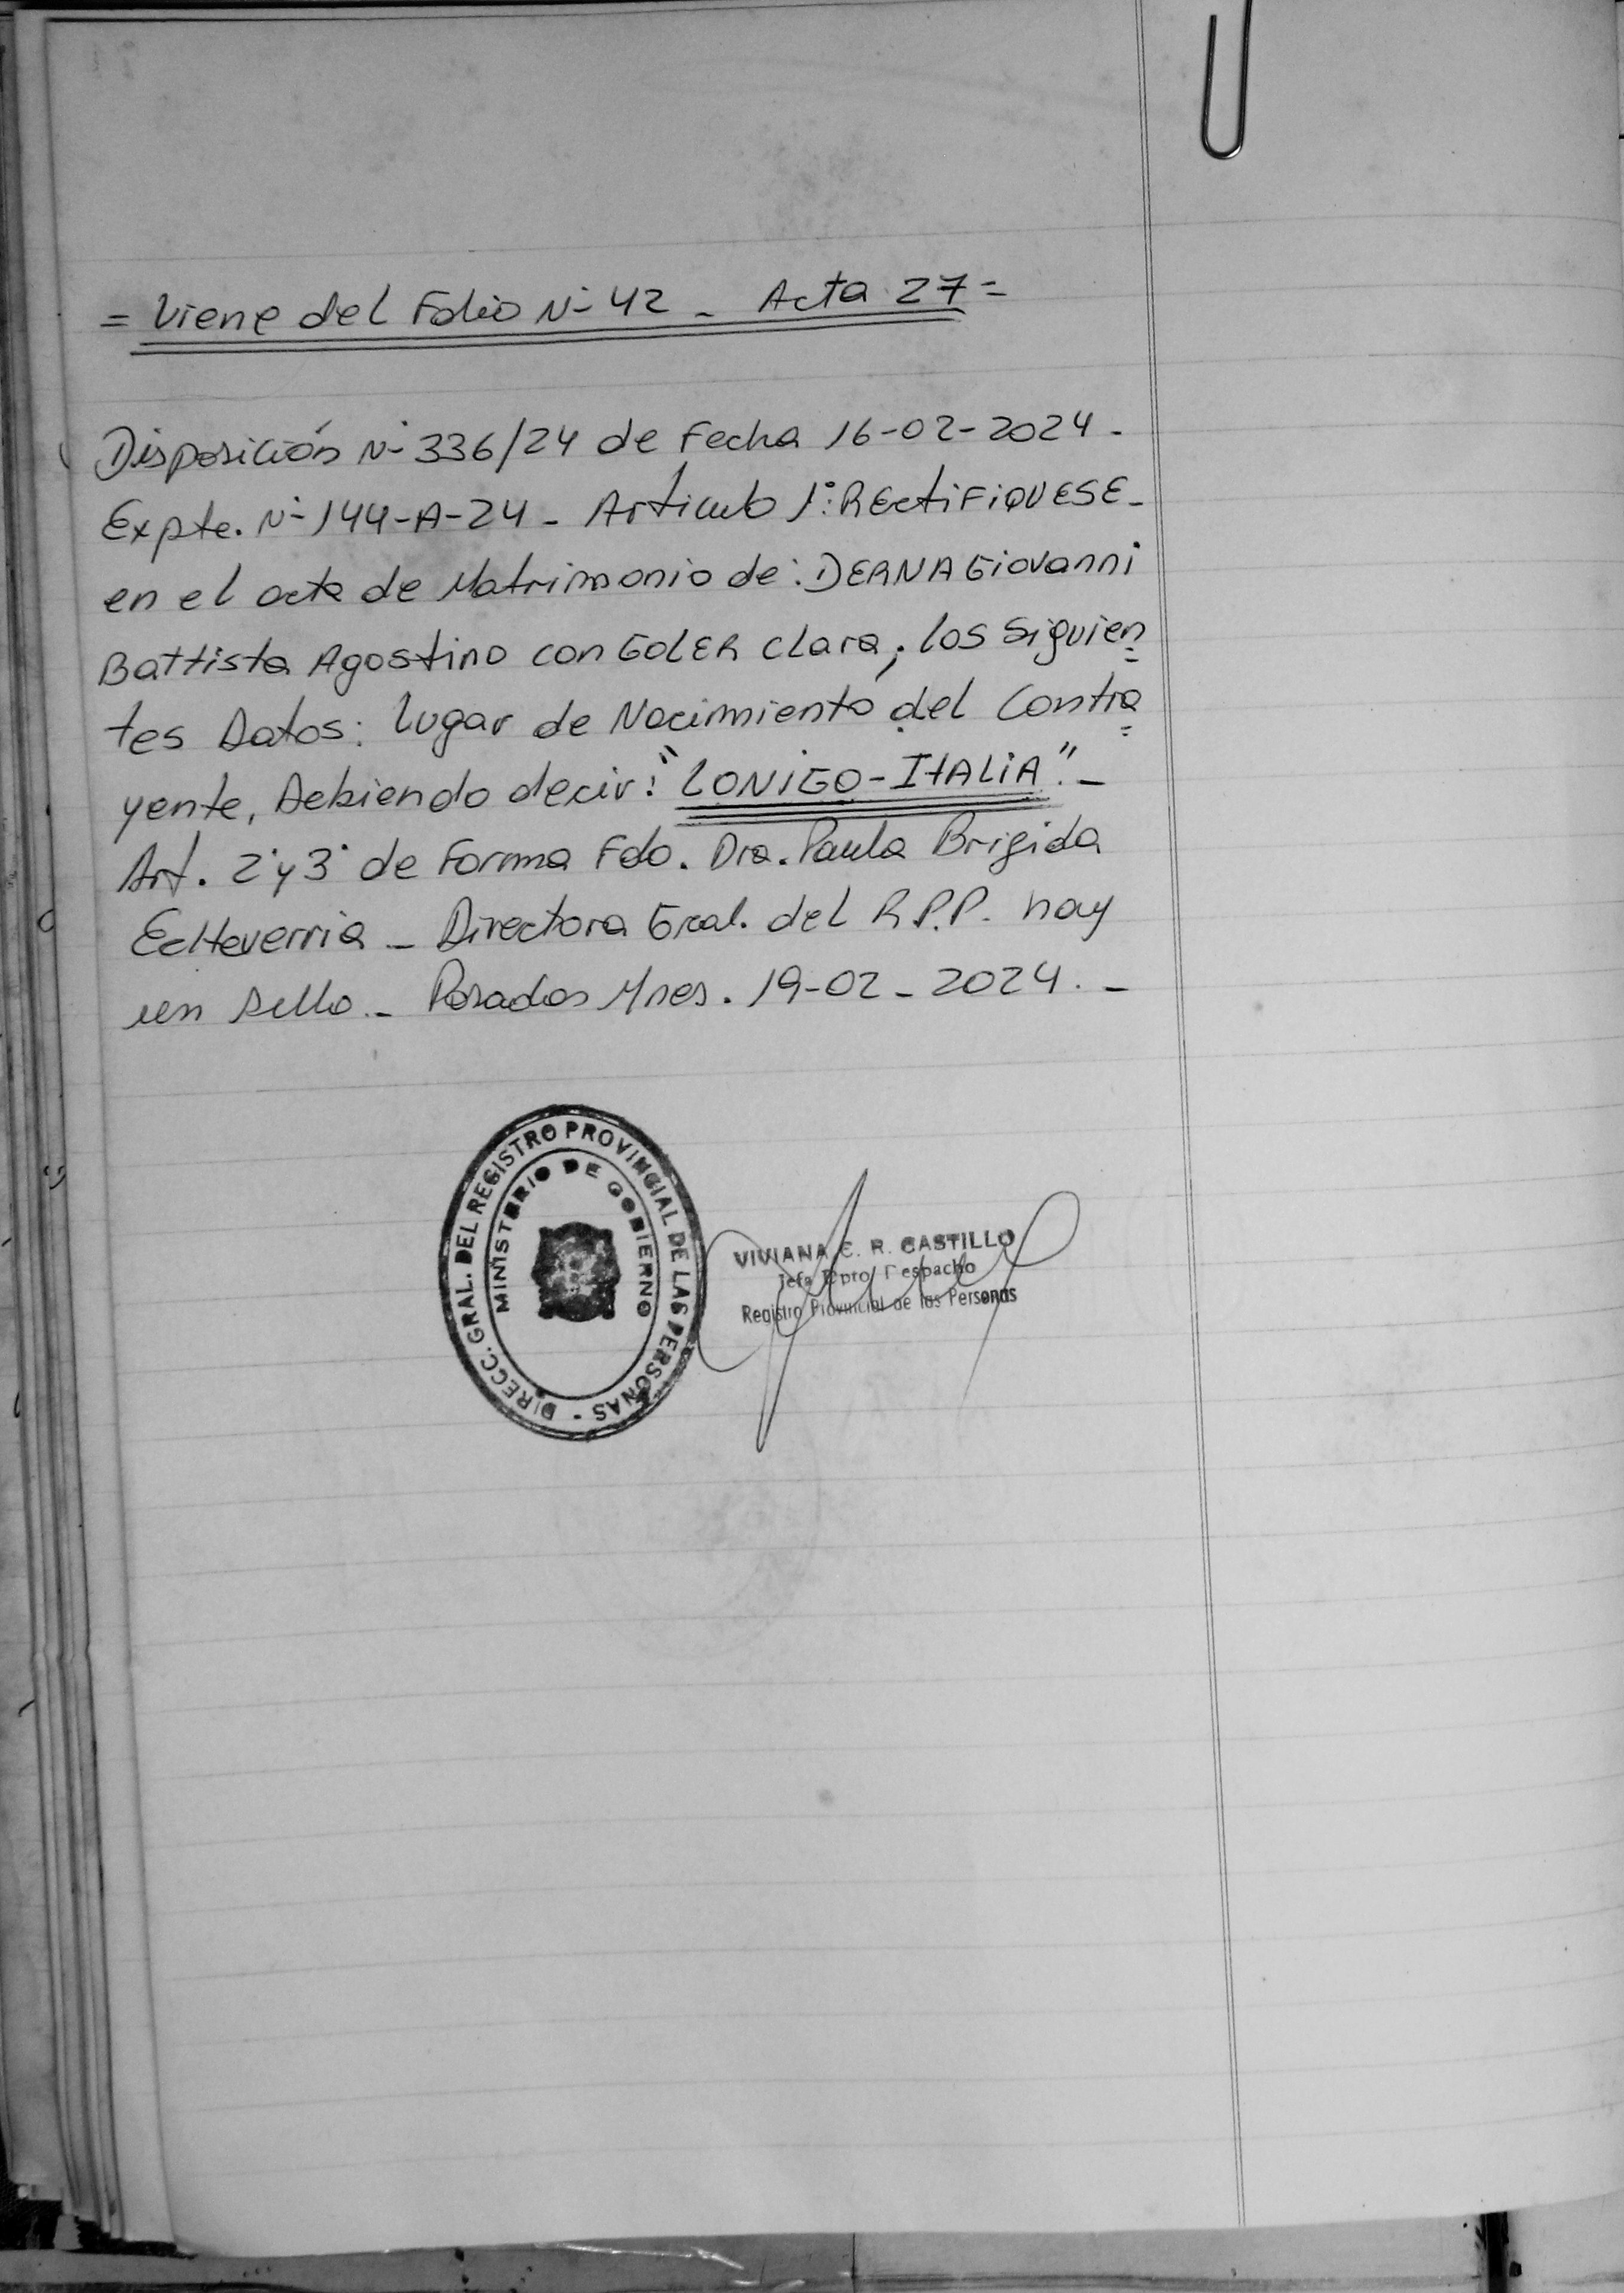 = Viene del Folio N° 42 - Acta 27 =
Disposición N° 336/24 de Fecha 16-02-2024.
Expte. N° 144-A-24 - Articulo 1°: RECtiFiQUESE-
en el acta de Matrimonio de: DERNA Giovanni
Battista Agostino con GOLER Clara; los Siguien=
tes Datos: lugar de Nacimiento del Contra=
yente, Debiendo decir: "LONIGO-ITALIA".-
Art. 2° y 3° de Forma Fdo. Dra. Paula Brigida
Echeverria - Directora Gral. del R.P.P. hay
un sello.- Posadas Mnes. 19-02-2024.-
DIRECC. GRAL. DEL REGISTRO PROVINCIAL DE LAS PERSONAS -
MINISTERIO DE GOBIERNO
VIVIANA E. R. CASTILLO
Jefa Dpto Despacho
Registro Provincial de las Personas